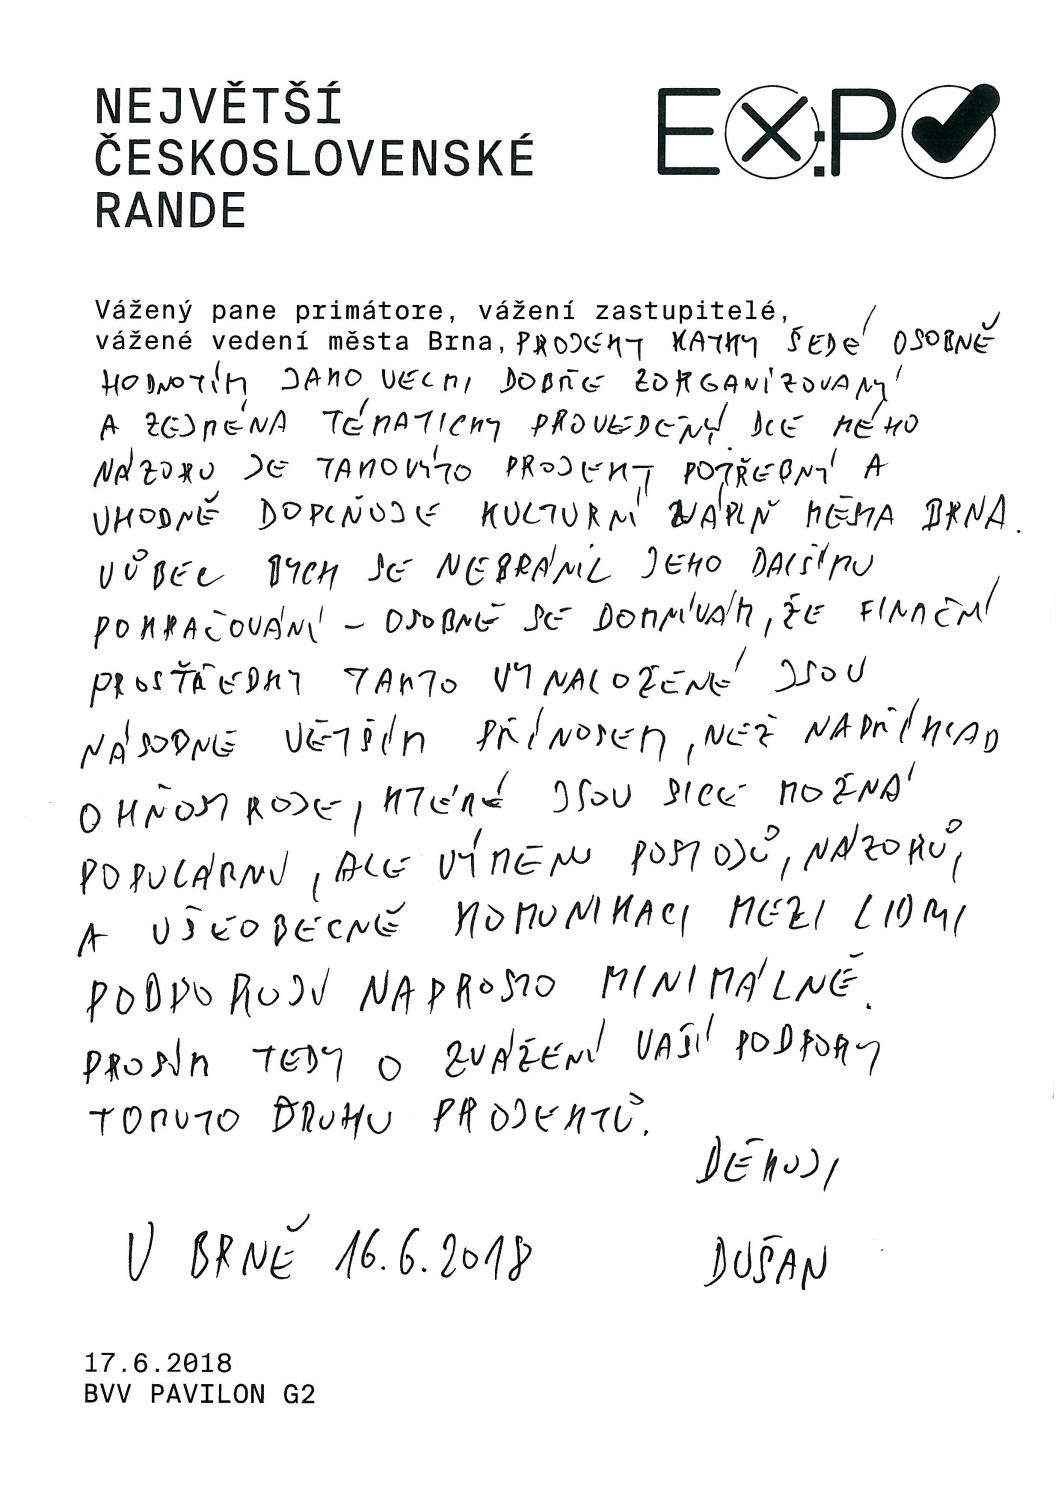 NEJVĚTŠÍ
ČESKOSLOVENSKÉ
RANDE
EX:PO
Vážený pane primátore, vážení zastupitelé,
vážené vedení města Brna, PROJEKT KATKY ŠEDÉ OSOBNĚ
HODNOTÍM JAKO VELMI DOBŘE ZORGANIZOVANÝ
A ZEJMÉNA TÉMATICKY PROVEDENÝ. DLE MÉHO
NÁZORU JE TAKOVÝTO PROJEKT POTŘEBNÝ A
VHODNĚ DOPLŇUJE KULTURNÍ NÁPLŇ MĚSTA BRNA.
VŮBEC BYCH SE NEBRÁNIL JEHO DALŠÍMU
POKRAČOVÁNÍ – OSOBNĚ SE DOMNÍVÁM, ŽE FINAČNÍ
PROSTŘEDKY TAKTO VYNALOŽENÉ JSOU
NÁSOBNĚ VĚTŠÍM PŘÍNOSEM, NEŽ NAPŘÍKLAD
OHŇOSTROJE, KTERÉ JSOU SICE MOŽNÁ
POPULÁRNÍ, ALE VÝMĚNU POSTOJŮ, NÁZORŮ,
A VŠEOBECNĚ KOMUNIKACI MEZI LIDMI
PODPORUJÍ NAPROSTO MINIMÁLNĚ.
PROSÍM TEDY O ZVÁŽENÍ VAŠÍ PODPORY
TOMUTO DRUHU PROJEKTŮ.
DĚKUJI
V BRNĚ 16.6.2018 DUŠAN
17.6.2018
BVV PAVILON G2